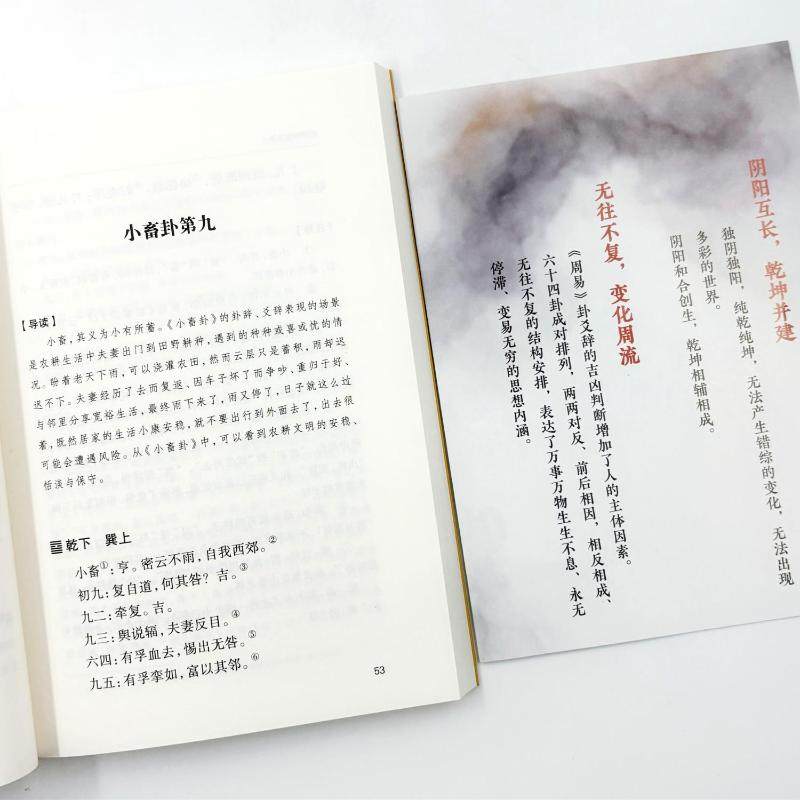 小畜卦第九
【导读】
小畜，其义为小有所蓄。《小畜卦》的卦辞、爻辞表现的场景
是农耕生活中夫妻出门到田野耕种，遇到的种种或喜或忧的情
况。盼着老天下雨，可以浇灌农田，然而云层只是蓄积，雨却迟
迟不下。夫妻经历了去而复返、因车子坏了而争吵、重归于好、
与邻里分享宽裕生活，最终雨下来了，雨又停了，日子就这么过
着，既然居家的生活小康安稳，就不要出行到外面去了，出去很
可能会遭遇风险。从《小畜卦》中，可以看到农耕文明的安稳、
恬淡与保守。
乾下　巽上
小畜①：亨。密云不雨，自我西郊。②
初九：复自道，何其咎？吉。③
九二：牵复。吉。
九三：舆说辐，夫妻反目。④
六四：有孚血去，惕出无咎。⑤
九五：有孚挛如，富以其邻。⑥
53
阴阳互长，乾坤并建
独阴独阳，纯乾纯坤，无法产生错综的变化，无法出现
多彩的世界。
阴阳和合创生，乾坤相辅相成。
无往不复，变化周流
《周易》卦爻辞的吉凶判断增加了人的主体因素。
六十四卦成对排列，两两对反、前后相因，相反相成、
无往不复的结构安排，表达了万事万物生生不息、永无
停滞、变易无穷的思想内涵。